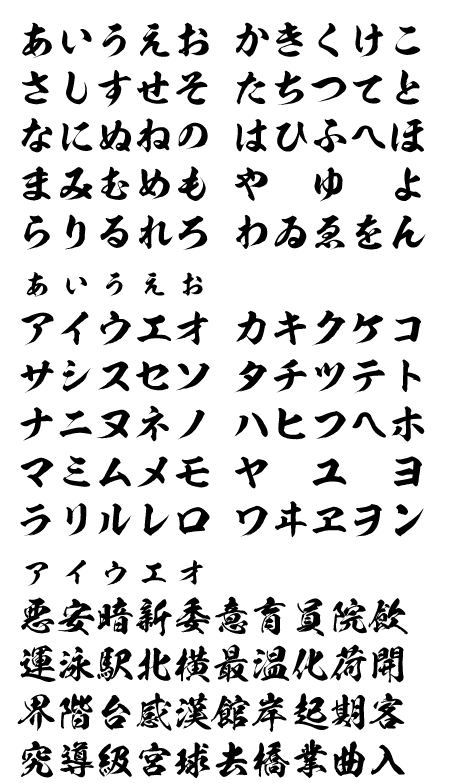 あいうえお かきくけこ
さしすせそ たちつてと
なにぬねの はひふへほ
まみむめも や ゆ よ
らりるれろ わゐゑをん
ぁぃぅぇぉ
アイウエオ カキクケコ
サシスセソ タチツテト
ナニヌネノ ハヒフヘホ
マミムメモ ヤ ユ ヨ
ラリルレロ ワヰヱヲン
ァィゥェォ
悪安暗新委意育員院飲
運泳駅北横最温化荷開
界階台感漢館岸起期客
究導級宮球去橋業曲入